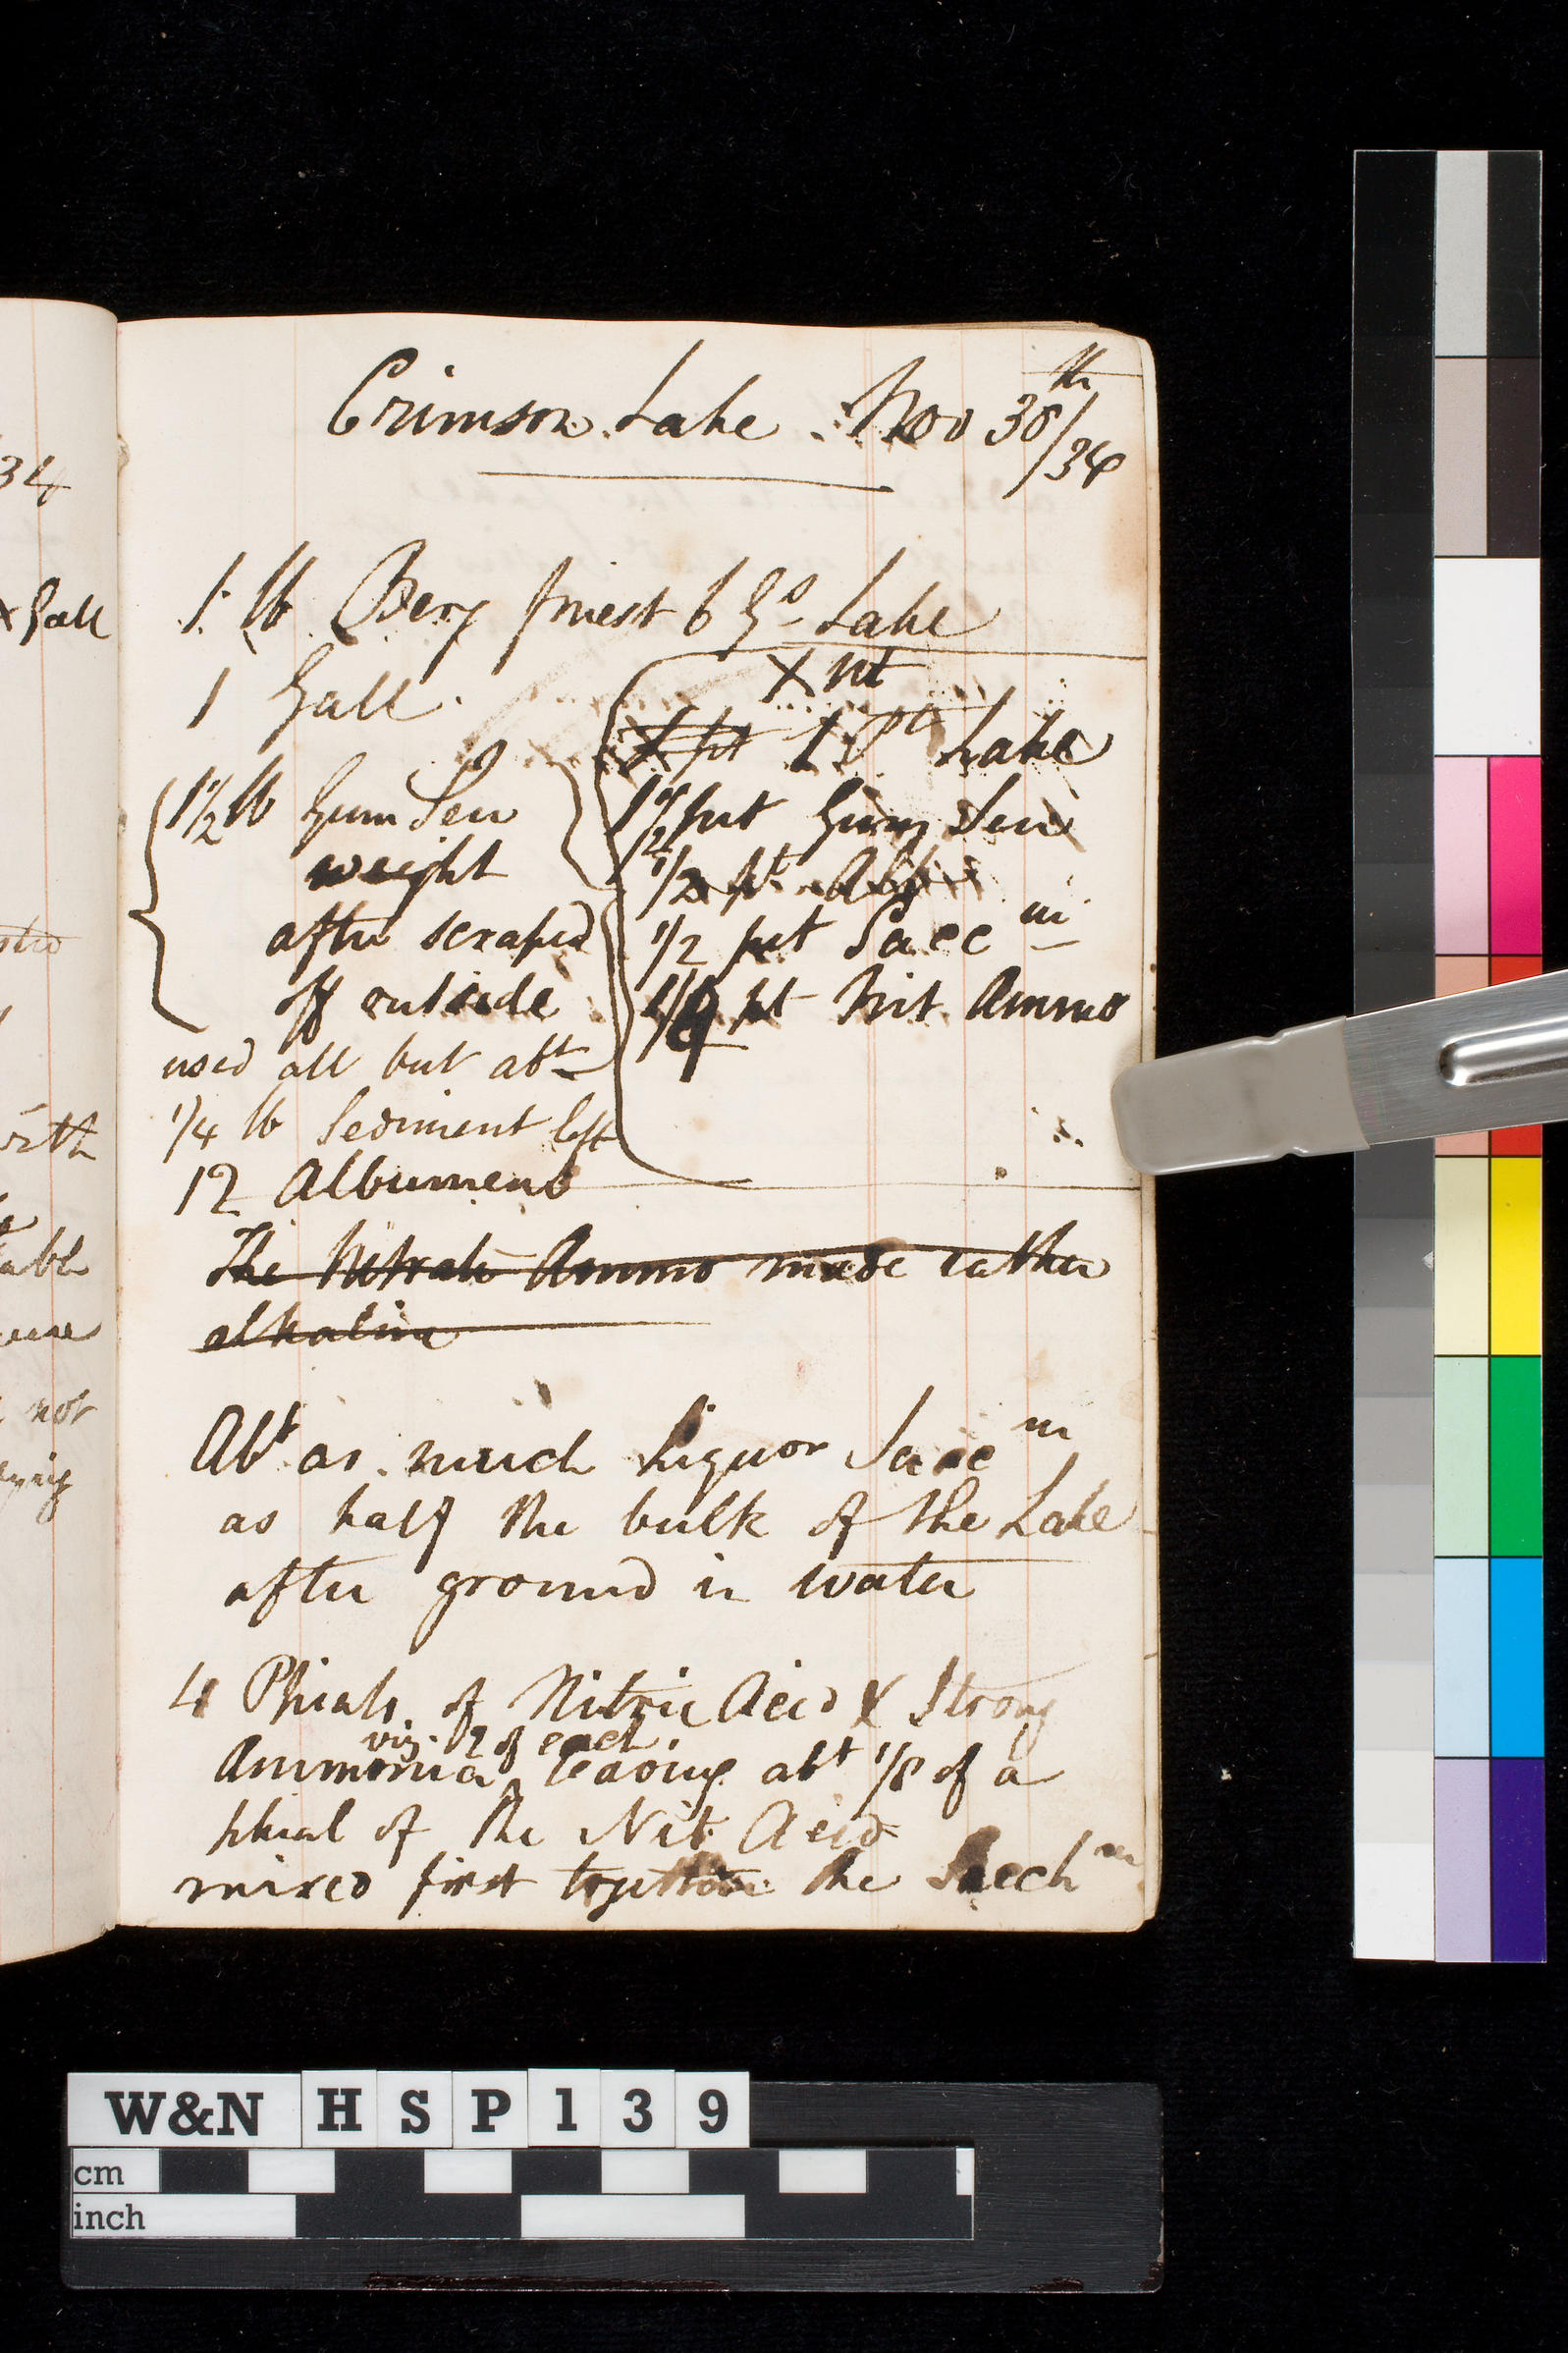 Crimson Lake Nov 30th/34
1 lb Very finest 6 Gs Lake
1 Gall
1 1/2 lb Gum Sen
weight
after scraped
off outside
used all but abt
1/4 lb Sediment left
12 Albumens
X nt
1 pt 1 Pt Lake
1/2 pt Gum Sen
1/2 pt Alb
1/2 pt Sacc m
pt Nit Ammo
The Nitrate Ammo made rather
alkaline
Abt as much Liquor Sacc m
as half the bulk of the Lake
after ground in water
4 Phials of Nitric Acid & Strong
viz. 2 of each
Ammonia ^ leaving abt 1/8 of a
phial of the Nit Acid
mixed first together the Sacch m
34
x Gall
with
able
not
W&N HSP139
cm
inch